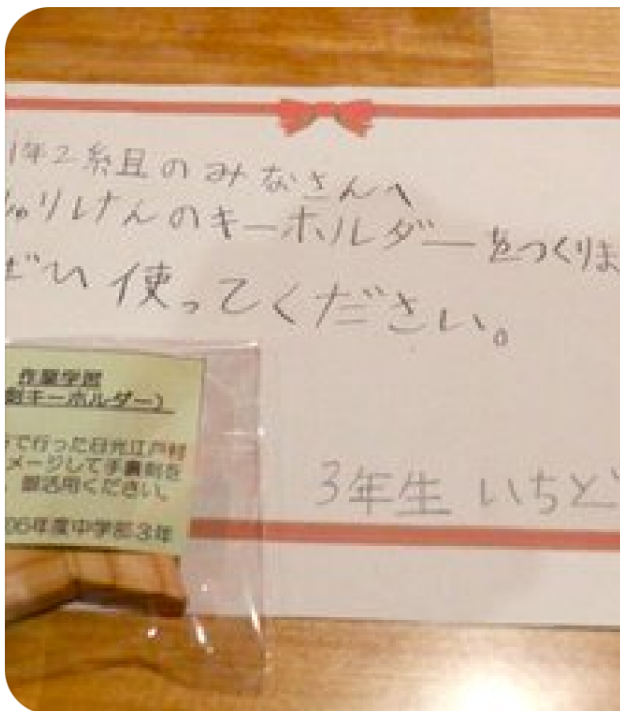 1年2組のみなさんへ
ゅりけんのキーホルダーをつくりま
ぜひ使ってください。
作業学習
剣キーホルダー）
で行った日光江戸村
メージして手裏剣を
御活用ください。
06年度中学部3年
3年生 いちど